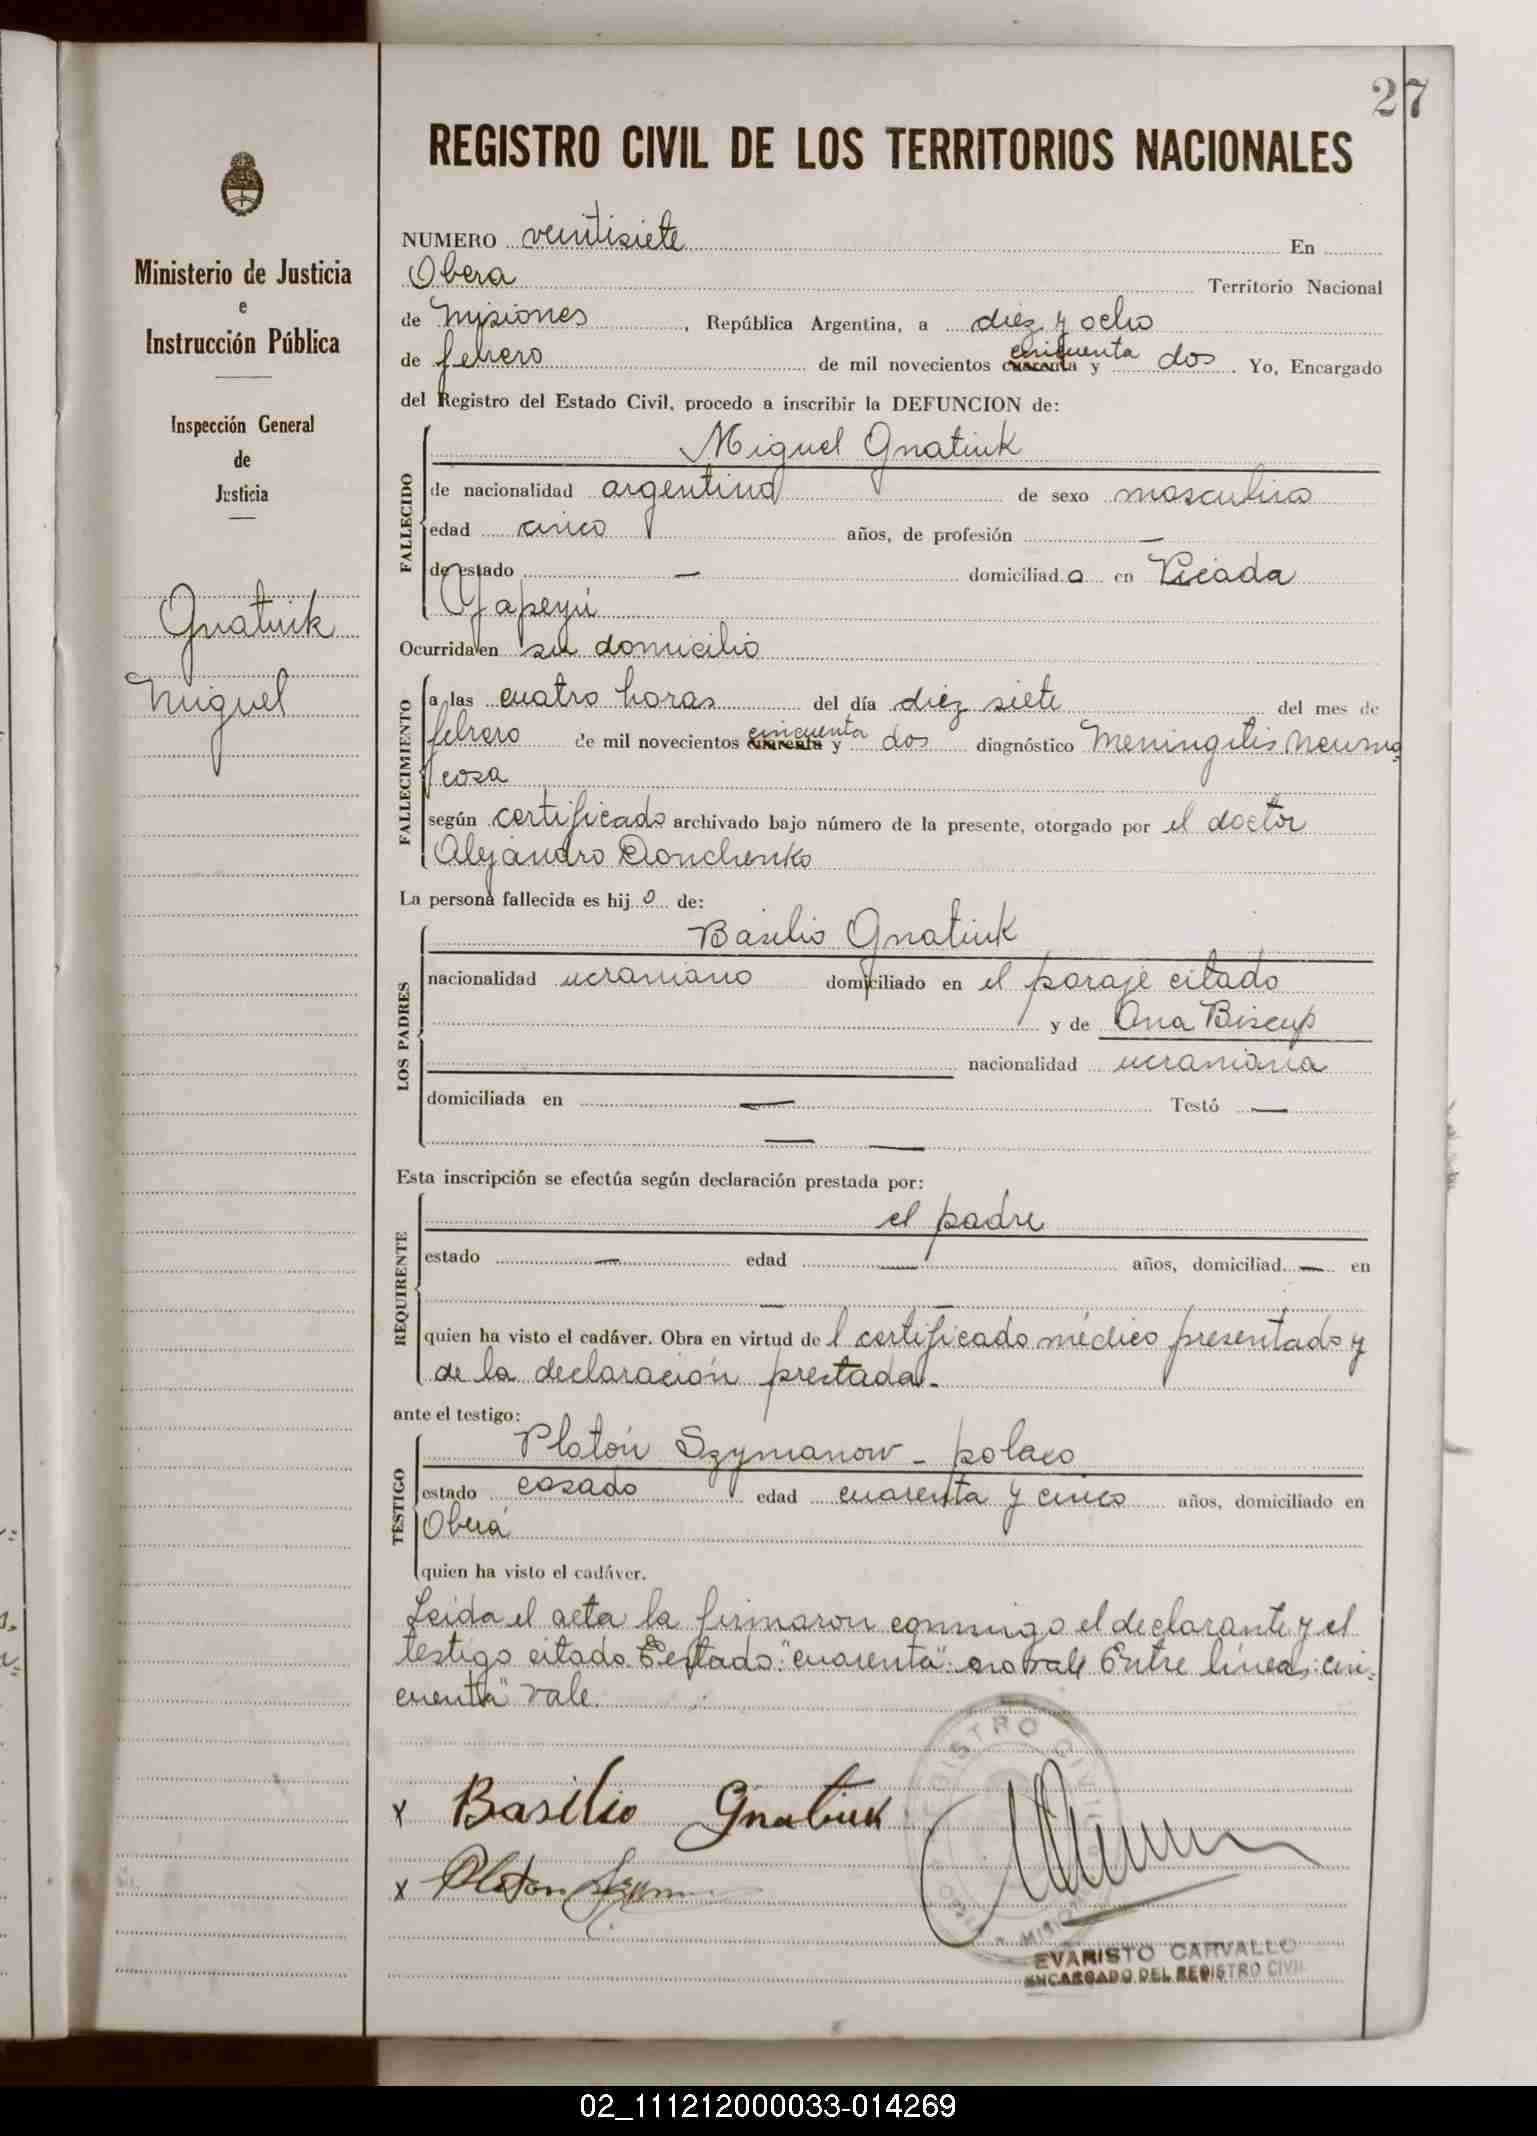 27
REGISTRO CIVIL DE LOS TERRITORIOS NACIONALES
Ministerio de Justicia
e
Instrucción Pública
Inspección General
de
Justicia
Gnatiuk
Miguel
NUMERO veintisiete En
Obera Territorio Nacional
de Misiones, República Argentina, a diez y ocho
cincuenta
de febrero de mil novecientos cuarenta y dos. Yo, Encargado
del Registro del Estado Civil, procedo a inscribir la DEFUNCION de:
FALLECIDO
Miguel Gnatiuk
de nacionalidad argentina de sexo masculino
edad cinco años, de profesión —
de estado — domiciliado en Picada
Yapeyú
Ocurrida en su domicilio
FALLECIMIENTO
a las cuatro horas del día diez siete del mes de
cincuenta
febrero de mil novecientos cuarenta y dos diagnóstico Meningitis Neumo-
cosa
según certificado archivado bajo número de la presente, otorgado por el doctor
Alejandro
La persona fallecida es hijo de:
LOS PADRES
Basilio Gnatiuk
nacionalidad ucraniano domiciliado en el paraje citado
y de Ana Biscup
nacionalidad ucraniana
domiciliada en — Testó —
— —
Esta inscripción se efectúa según declaración prestada por:
REQUIRENTE
el padre
estado — edad — años, domiciliad — en
— —
quien ha visto el cadáver. Obra en virtud del certificado médico presentado y
de la declaración prestada.
ante el testigo:
TESTIGO
Platón Szymanow - polaco
estado casado edad cuarenta y cinco años, domiciliado en
Oberá
quien ha visto el cadáver.
Leida el acta la firmaron conmigo el declarante y el
testigo citado. Testado: "cuarenta": no vale Entre líneas: cin=
cuenta" vale.
REGISTRO CIVIL
MISIONES
x Basilio Gnatiuk
x Platon
EVARISTO CARVALLO
ENCARGADO DEL REGISTRO CIVIL
02_111212000033-014269